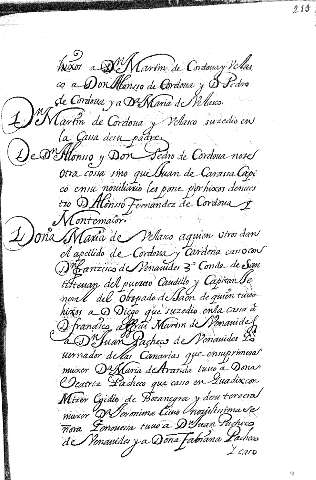 213
hixos a Dn Martin de Cordova y Velas
co a Don Alonso de Cordova y D Pedro
de Cordova y a Da Maria de Velasco.
Dn Martin de Cordova y Velasco suzedio en
la Casa de su padre
De Dn Alonso y Don Pedro de Cordova no se
otra cosa sino que Juan de Caravia Capi
co en su nouiliario les pone por hixos de nues
tro D Alonso Fernandez de Cordova y
Montemaior
Doña Maria de Velasco a quien otros dan
el apellido de Cordova y Cardona caso con
Dn Franzisco de Venauides 3º Conde de San
tisteuan del puerto Caudillo y Capitan Je
neral del Obispado de Jaen de quien tuuo
hixos a D Diego que suzedio en la casa a
D franco, a Martin de Venauides
a Dn Juan Pacheco de Venauides Go
uernador de las Canarias que en su primera
muxer Da Maria de Aranda tuuo a Doña
Beatriz Pacheco que caso en Guadix con
Mizer Egidio de Bocanegra y de su tersera
muxer Da Geronima Cino nouilisima Se
ñora Genouesa tuuo a Dn Juan Pacheco
de Venauides y a Doña Fabiana Pacheco
y caso